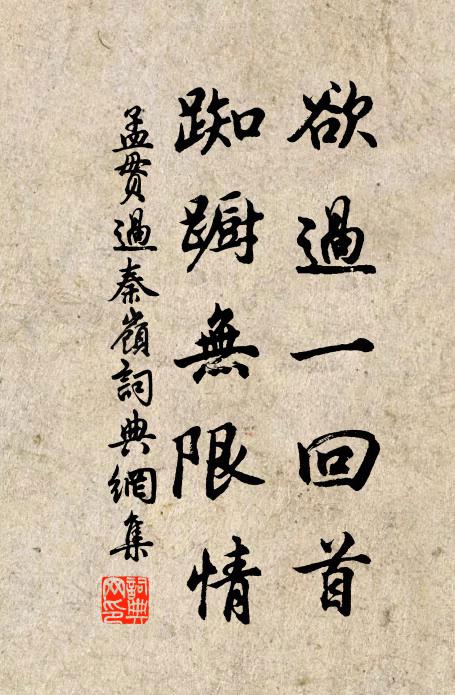 欲過一回首
踟躕無限情
孟貫過秦嶺詞典網集
詞典網印